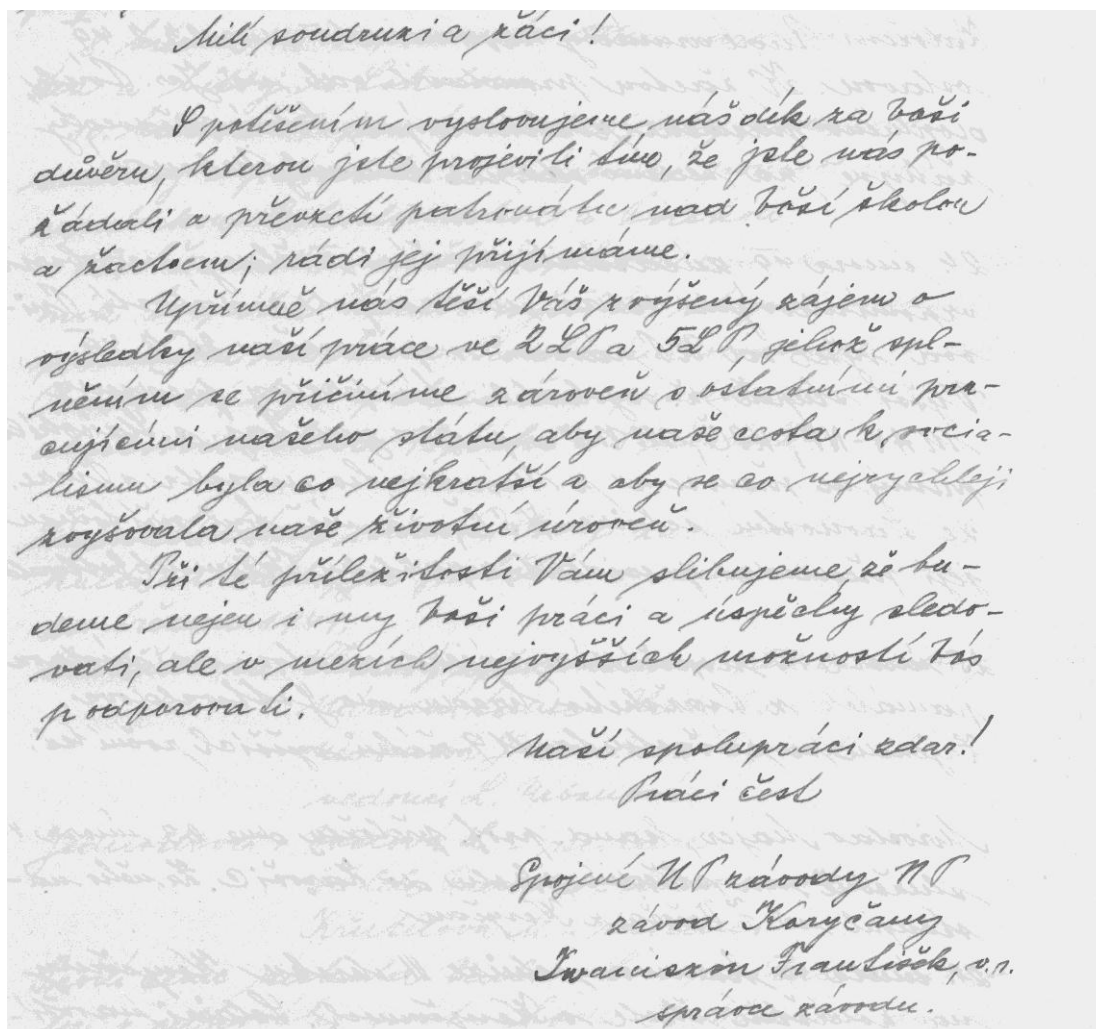 Milí soudruzi a žáci!
S potěšením vyslovujeme náš dík za Vaši
důvěru, kterou jste projevili tím, že jste nás po-
žádali o převzetí patronátu nad Vaší školou
a žactvem; rádi jej přijímáme.
Upřímně nás těší Váš zvýšený zájem o
výsledky naší práce ve 2LP a 5LP, jehož spl-
něním se přičiníme zároveň s ostatními pra-
cujícími našeho státu, aby naše cesta k socia-
lismu byla co nejkratší a aby se co nejrychleji
zvyšovala naše životní úroveň.
Při té příležitosti Vám slibujeme, že bu-
deme nejen i my Vaši práci a úspěchy sledo-
vati, ale v mezích nejvyšších možností Vás
podporovati.
Naší spolupráci zdar!
Práci čest
Spojené UP závody NP
závod Koryčany
František, v.r.
správce závodu.